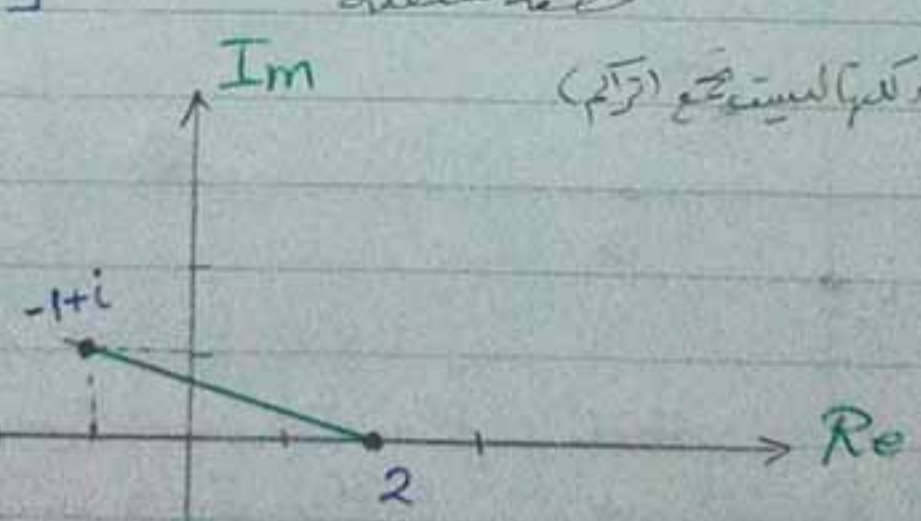 Im
كلها ليست تجمع (تراكم)
-1+i
Re
2